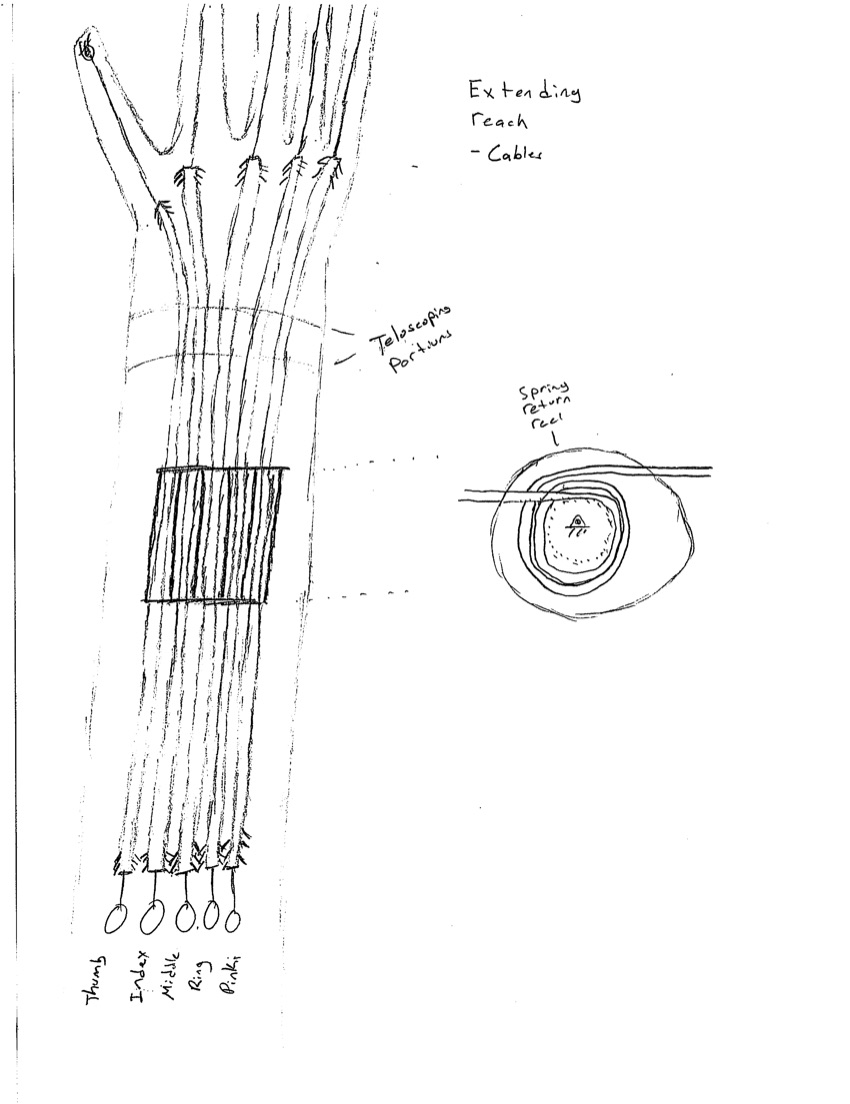 Extending
reach
- Cables
Teloscoping
Portions
Spring
return
reel
Thumb
Index
Middle
Ring
Pinki